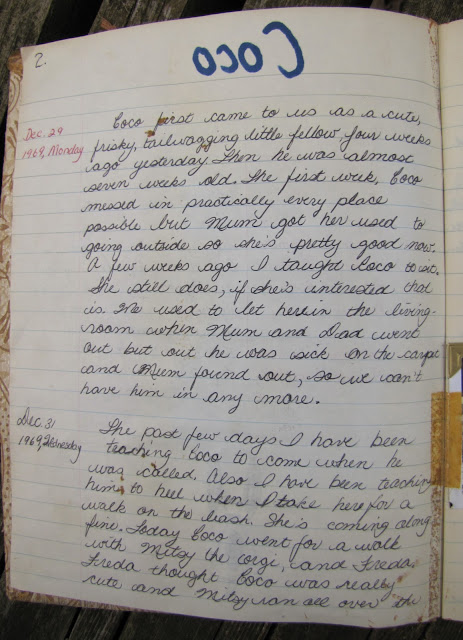 2.
Coco
Dec. 29
1969, Monday
Coco first came to us as a cute,
frisky, tailwagging little fellow, four weeks
ago yesterday. Then he was almost
seven weeks old. The first week, Coco
messed in practically every place
possible but Mum got her used to
going outside so she's pretty good now.
A few weeks ago I taught Coco to sit.
She still does, if she's interested that
is. We used to let her in the living-
room when Mum and Dad went
out but out he was sick on the carpet
and Mum found out, so we can't
have him in any more.
Dec. 31
1969, Wednesday
The past few days I have been
teaching Coco to come when he
was called. Also I have been teaching
him to heel when I take her for a
walk on the leash. She's coming along
fine. Today Coco went for a walk
with Mitsy the corgi, and Freda.
Freda thought Coco was really
cute and Mitsy ran all over the